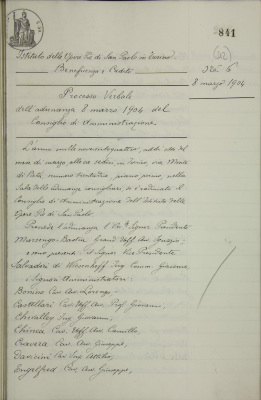 841
Istituto delle Opere Pie di San Paolo in Torino
Beneficenza e Credito
8 marzo 1904
Processo Verbale
dell'adunanza 8 marzo 1904 del
Consiglio di Amministrazione.
L'anno mille novecentoquattro addì otto del
mese di marzo, alle ore in Torino, via Monte
di Pietà, numero trentadue, piano primo, nella
Sala delle adunanze consigliari si è radunato il
Consiglio di Amministrazione dell'Istituto delle
Opere Pie di San Paolo
Presiede l'adunanza l'Ill.mo Signor Presidente
Marengo Avv. Ignazio;
sono presenti il Signor Vice Presidente
Salvadori di Wiesenhoff Ing. Comm. Giacomo,
i Signori Amministratori:
Bonino Cav. Avv. Lorenzo
Castellari Cav. Uff. Avv. Prof. Giovanni,
Chevalley Ing. Giovanni,
Chimica Cav. Uff. Avv. Camillo,
Cravera Cav. Avv. Giuseppe,
Daviccini Cav. Ing. Attilio,
Engelfred Cav. Avv. Giuseppe,